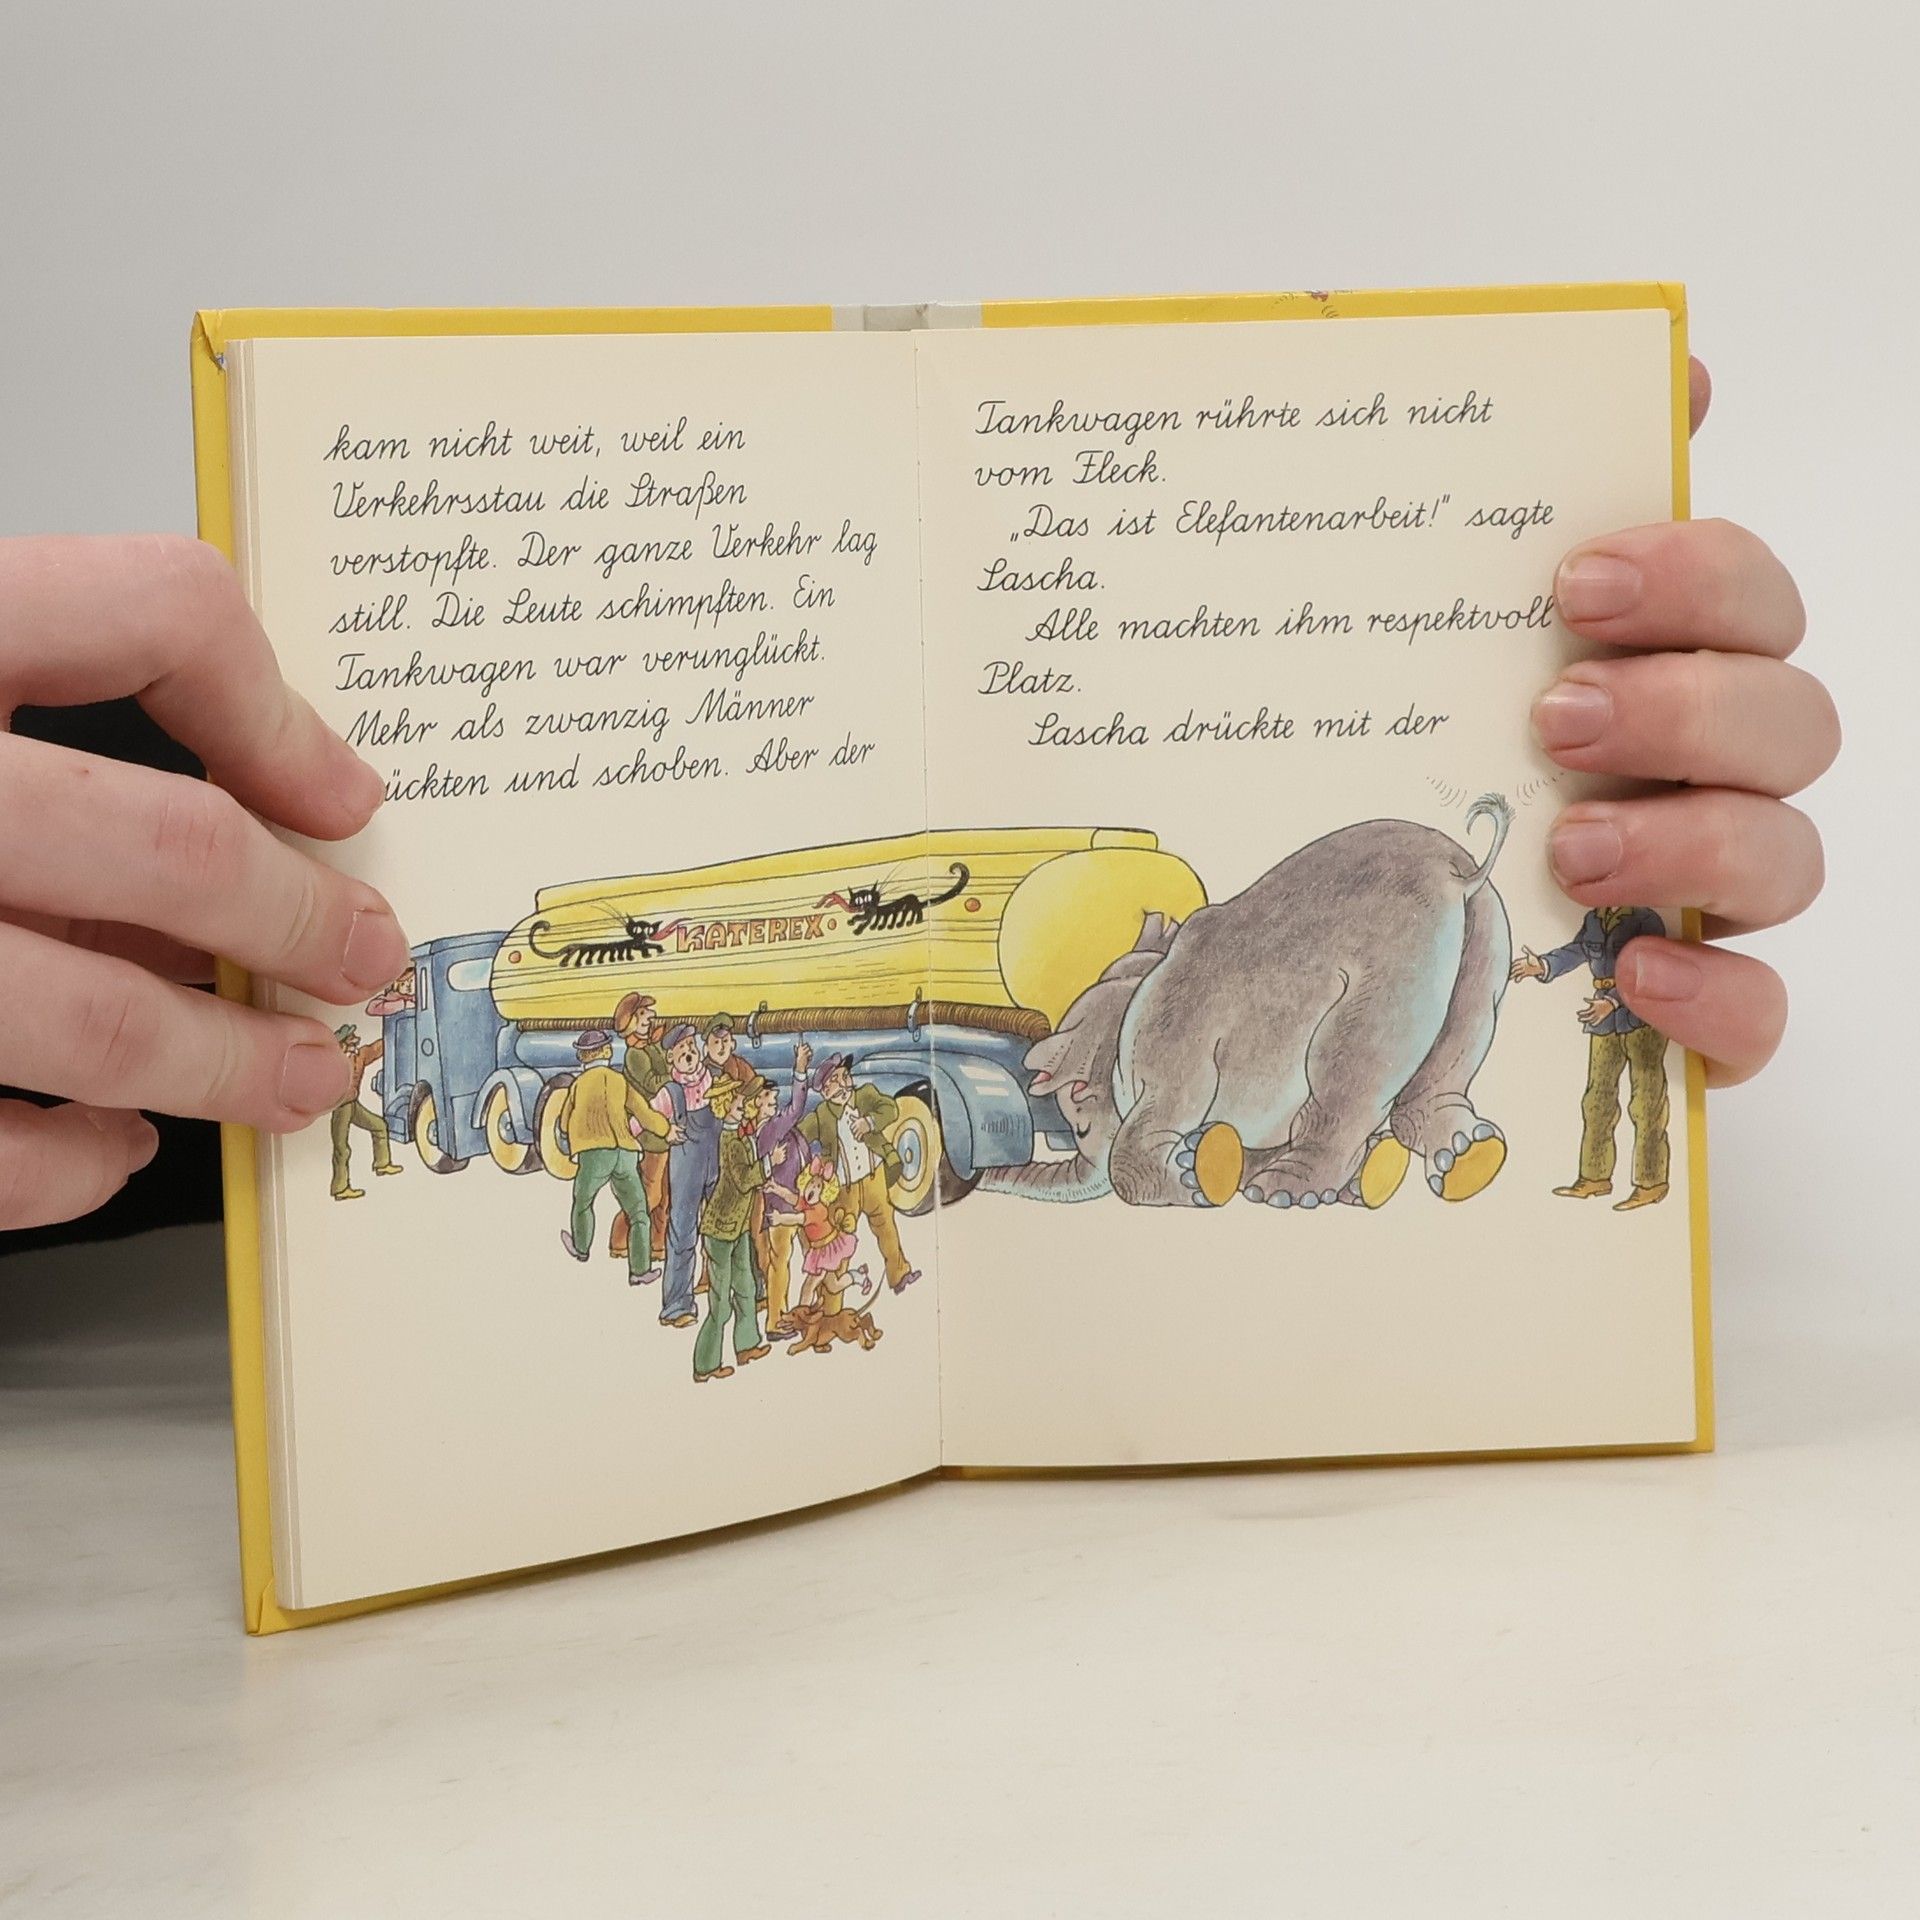 kam nicht weit, weil ein
Verkehrsstau die Straßen
verstopfte. Der ganze Verkehr lag
still. Die Leute schimpften. Ein
Tankwagen war verunglückt.
Mehr als zwanzig Männer
ückten und schoben. Aber der
KATEREX
Tankwagen rührte sich nicht
vom Fleck.
„Das ist Elefantenarbeit!" sagte
Sascha.
Alle machten ihm respektvoll
Platz.
Sascha drückte mit der